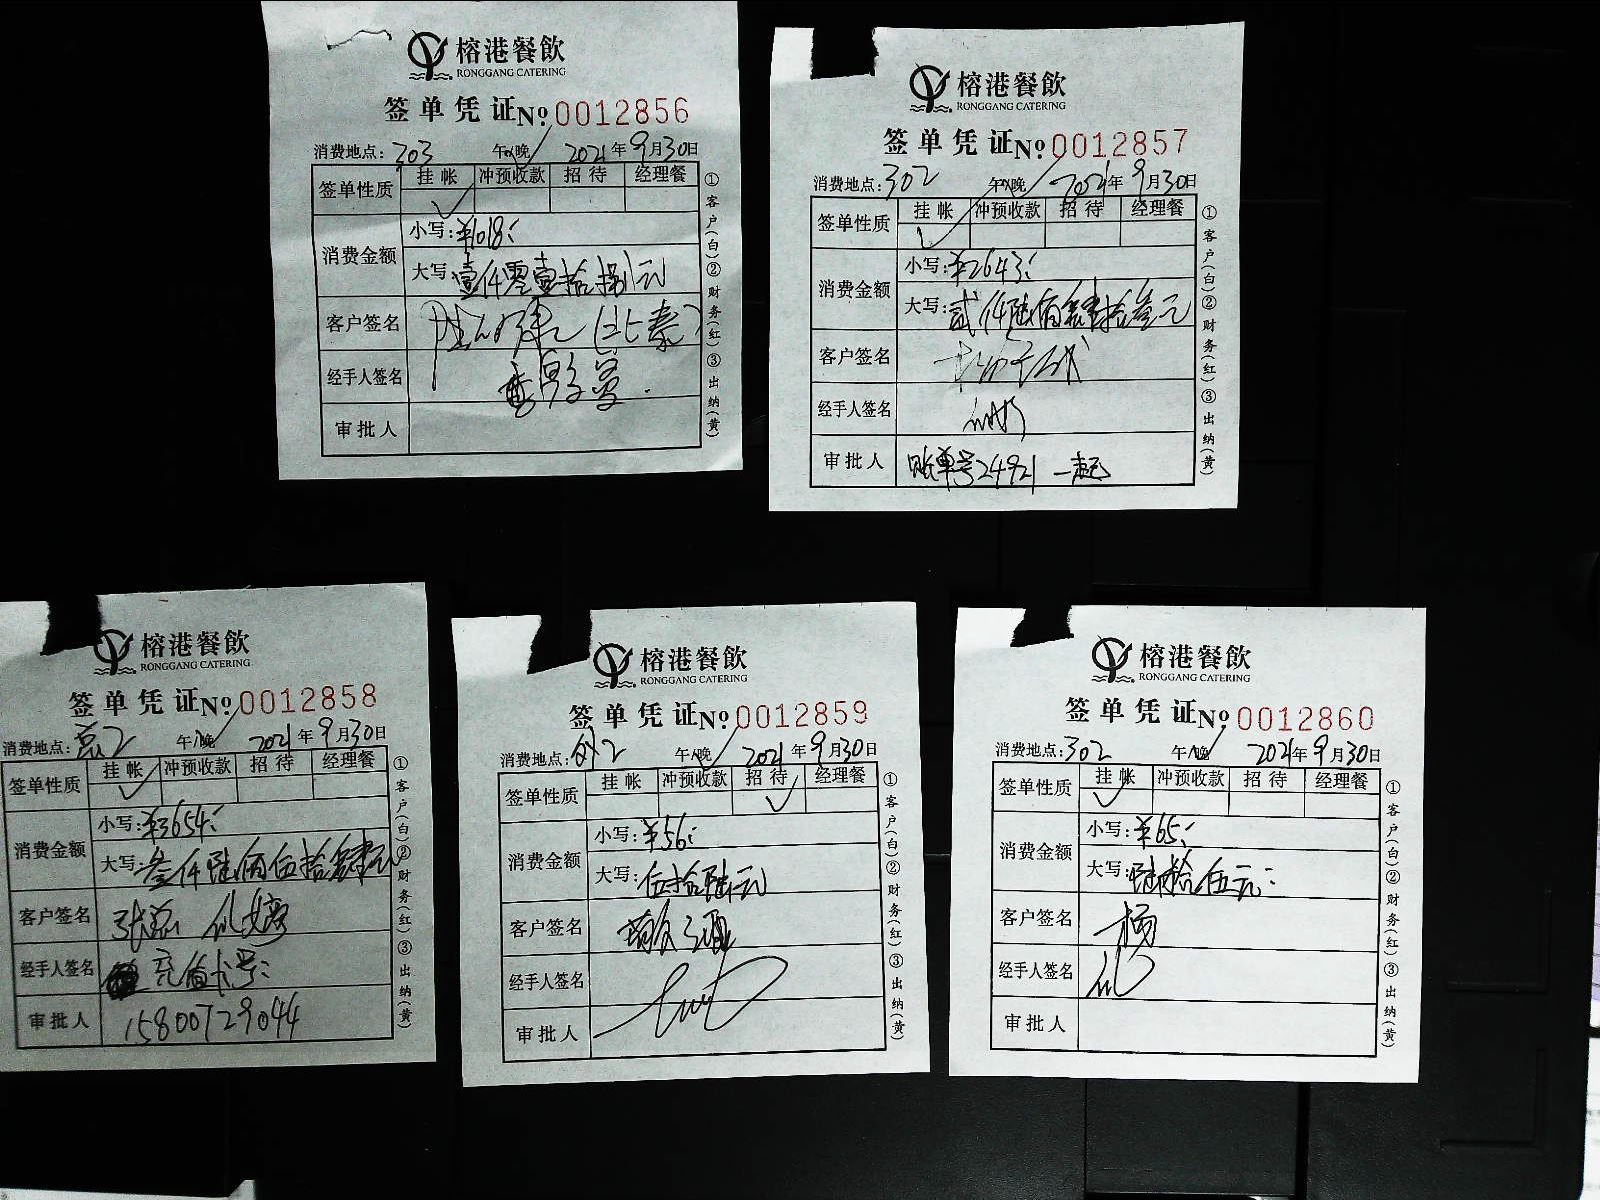 榕港餐飲
RONGGANG CATERING
签单凭证 No 0012856
消费地点：303 午/晚 2021年9月30日
签单性质 挂帐 冲预收款 招待 经理餐
消费金额
小写：¥1018：
大写：壹仟零壹拾捌元
客户签名 （北秦）
经手人签名
审批人
①客户（白）②财务（红）③出纳（黄）
榕港餐飲
RONGGANG CATERING
签单凭证 No 0012857
消费地点：302 午/晚 2021年9月30日
签单性质 挂帐 冲预收款 招待 经理餐
消费金额
小写：¥2643：
大写：贰仟陆佰肆拾叁元
客户签名
经手人签名
审批人 账单号24921一起
①客户（白）②财务（红）③出纳（黄）
榕港餐飲
RONGGANG CATERING
签单凭证 No 0012858
消费地点：2 午/晚 2021年9月30日
签单性质 挂帐 冲预收款 招待 经理餐
消费金额
小写：¥3654：
大写：叁仟陆佰伍拾肆元
客户签名 张总
经手人签名 充值卡号：
审批人 15800729044
①客户（白）②财务（红）③出纳（黄）
榕港餐飲
RONGGANG CATERING
签单凭证 No 0012859
消费地点：外2 午/晚 2021年9月30日
签单性质 挂帐 冲预收款 招待 经理餐
消费金额
小写：¥56：
大写：伍拾陆元
客户签名
经手人签名
审批人
①客户（白）②财务（红）③出纳（黄）
榕港餐飲
RONGGANG CATERING
签单凭证 No 0012860
消费地点：302 午/晚 2021年9月30日
签单性质 挂帐 冲预收款 招待 经理餐
消费金额
小写：¥65：
大写：陆拾伍元：
客户签名 杨
经手人签名
审批人
①客户（白）②财务（红）③出纳（黄）